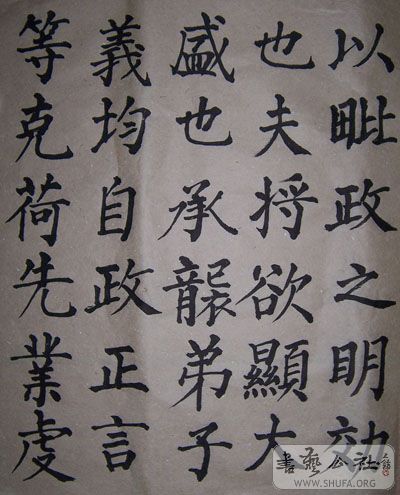 以毗政之明効
也夫将欲顯大
盛也承襲弟子
義均自政正言
等克荷先業虔
書藝公社
WWW.SHUFA.ORG